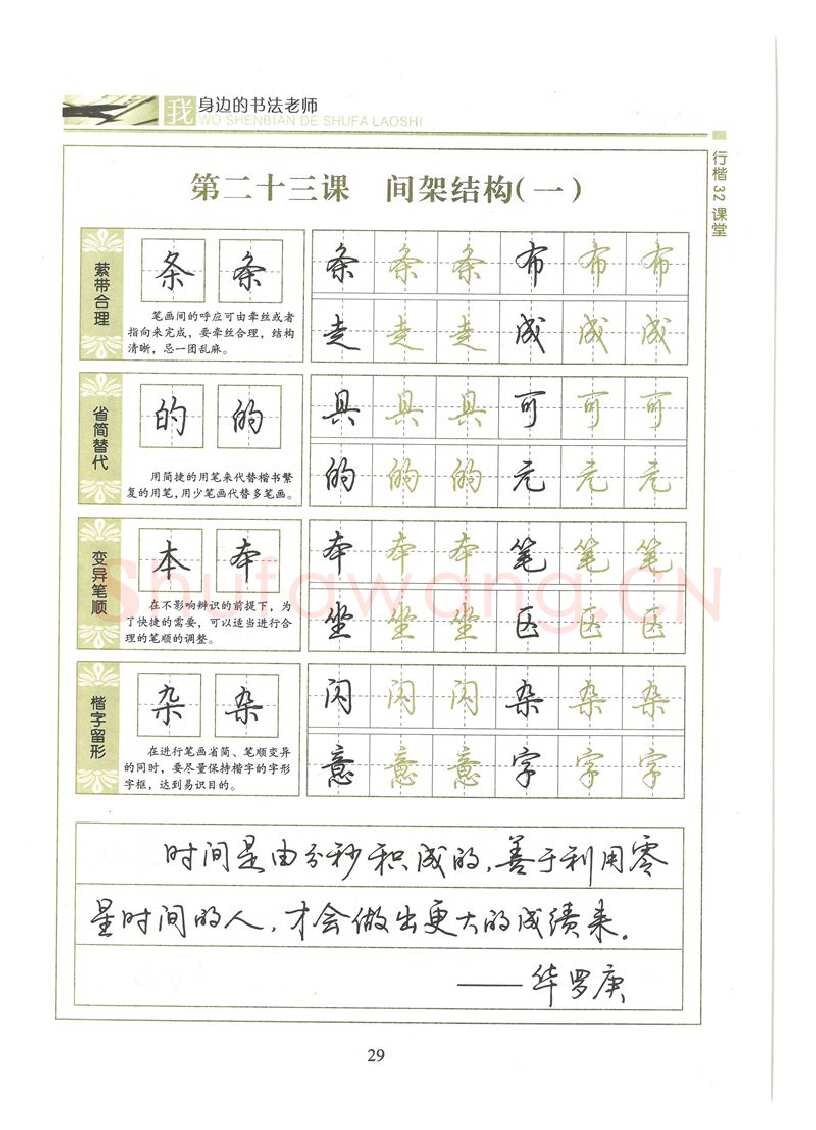 我身边的书法老师
WO SHENBIAN DE SHUFA LAOSHI
行楷32课堂
第二十三课 间架结构(一)
萦带合理
条 条
笔画间的呼应可由牵丝或者
指向来完成,要牵丝合理,结构
清晰,忌一团乱麻。
条 条 条 布 布 布
走 走 走 成 成 成
省简替代
的 的
用简捷的用笔来代替楷书繁
复的用笔,用少笔画代替多笔画。
具 具 具 可 可 可
的 的 的 元 元 元
变异笔顺
本 本
在不影响辨识的前提下,为
了快捷的需要,可以适当进行合
理的笔顺的调整。
本 本 本 笔 笔 笔
坐 坐 坐 区 区 区
Shufawang.CN
楷字留形
杂 杂
在进行笔画省简、笔顺变异
的同时,要尽量保持楷字的字形
字框,达到易识目的。
闪 闪 闪 杂 杂 杂
意 意 意 字 字 字
时间是由分秒积成的,善于利用零
星时间的人,才会做出更大的成绩来。
——华罗庚
29